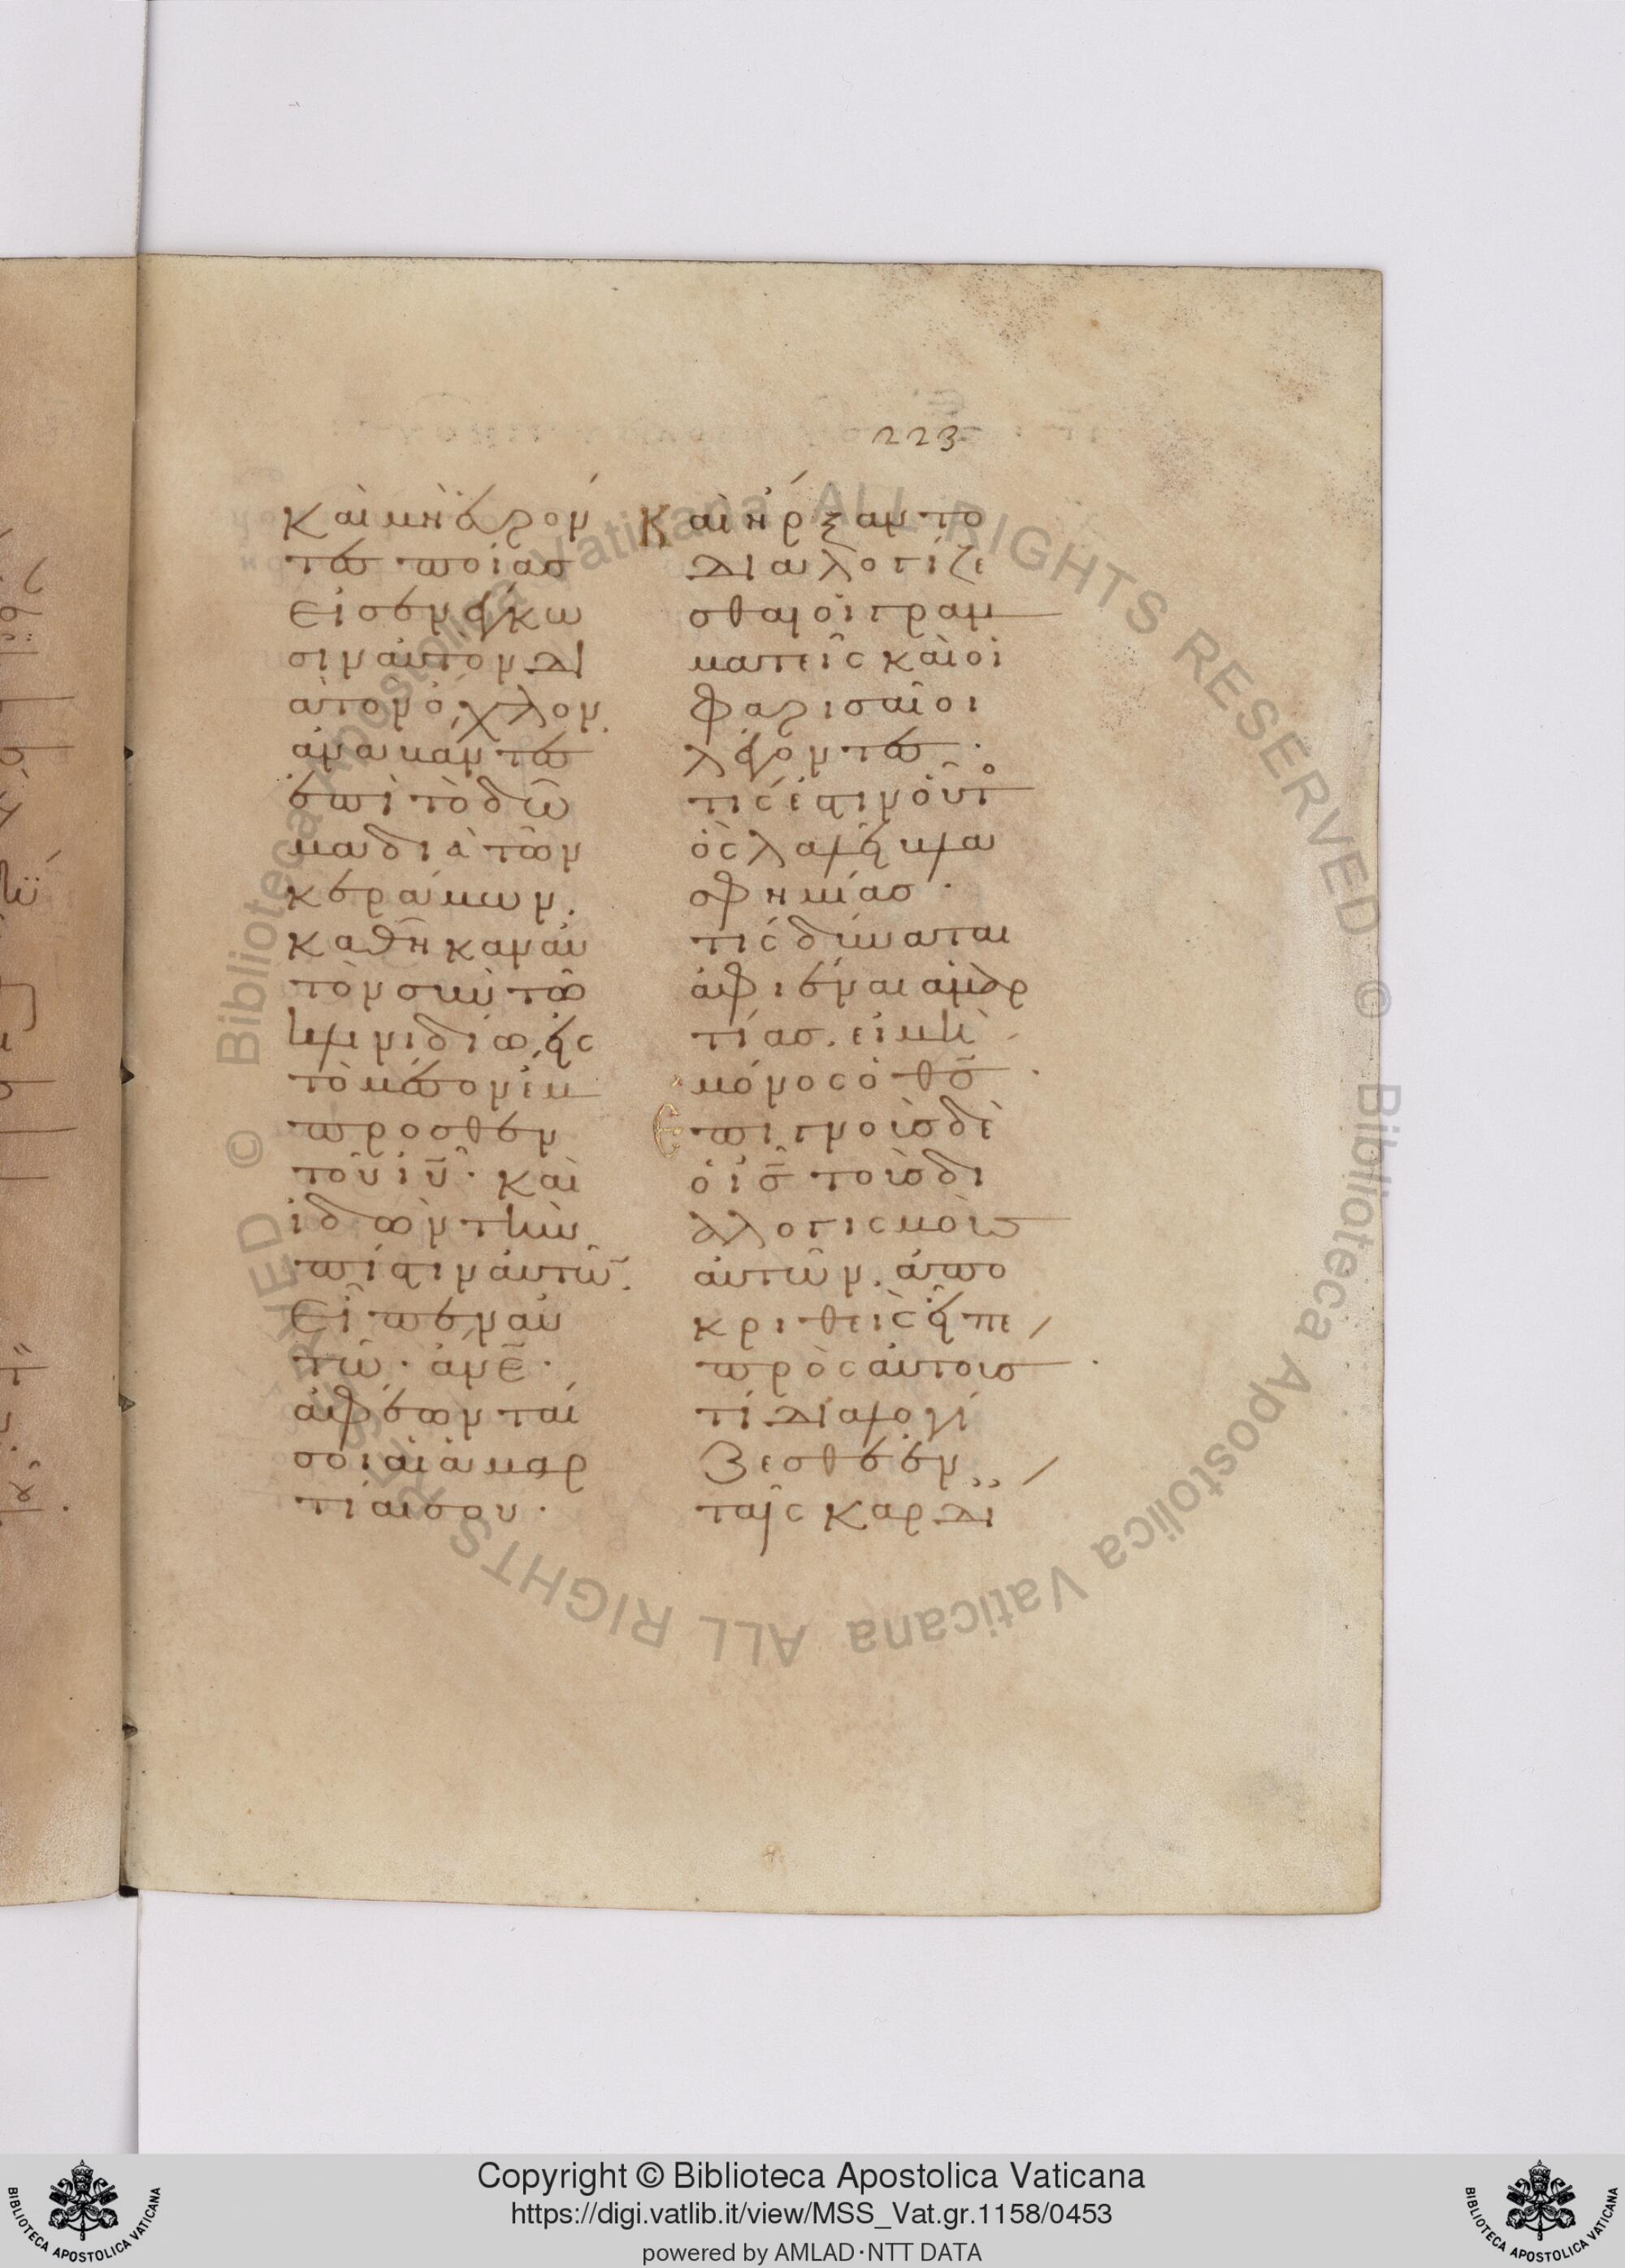 223
καὶ μὴ εὑρόν
τες ποίας
εἰσενέγκω
σιν αὐτὸν δι
ὰ τὸν ὄχλον,
ἀναβάντες
ἐπὶ τὸ δῶ
μα διὰ τῶν
κεράμων.
καθῆκαν αὐ
τὸν σὺν τῶ
κλινιδίω εἰς
τὸ μέσον ἔμ
προσθεν
τοῦ ἰῦ· καὶ
ἰδὼν τὴν
πίστιν αὐτῶ̄.
εἶπεν αὐ
τῶ· ἄνε̄·
ἀφέωνταί
σοι αἱ ἁμαρ
τίαι σου·
καὶ ἤρξαντο
διαλογίζε
σθαι οἱ γραμ
ματεῖς καὶ οἱ
φαρισαῖοι
λέγοντες·
τίς ἐστιν οὗτο
ὃς λαλεῖ βλα
σφημίας·
τίς δύναται
ἀφιέναι ἁμαρ
τίας. εἰ μὴ
μόνος ὁ θς̄·
ἐπιγνοὺς δὲ
ὁ ις̄ τοὺς δι
αλογισμοὺς
αὐτῶν. ἀπο
κριθεὶς εἶπε
πρὸς αὐτους·
τί διαλογί
ζεσθε ἐν
ταῖς καρδί
Copyright © Biblioteca Apostolica Vaticana
https://digi.vatlib.it/view/MSS_Vat.gr.1158/0453
powered by AMLAD·NTT DATA
BIBLIOTECA APOSTOLICA VATICANA
BIBLIOTECA APOSTOLICA VATICANA
© Biblioteca Apostolica Vaticana ALL RIGHTS RESERVED
© Biblioteca Apostolica Vaticana ALL RIGHTS RESERVED